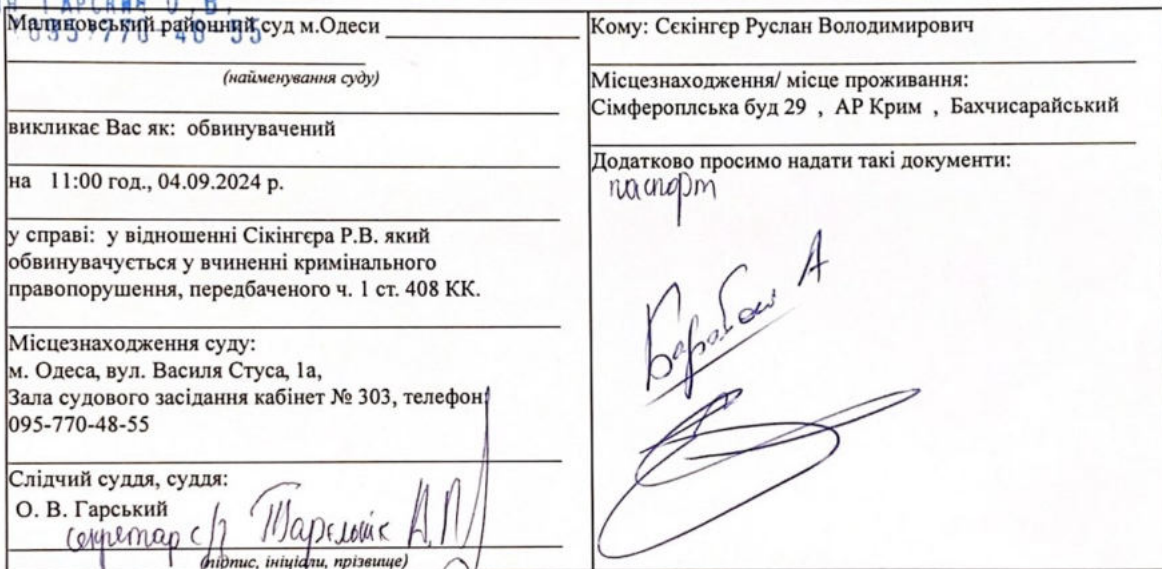 ГАРСКИЙ О.В.
095 770 48 55
Малиновський районний суд м.Одеси
(найменування суду)
викликає Вас як: обвинувачений
на 11:00 год., 04.09.2024 р.
у справі: у відношенні Сікінгєра Р.В. який
обвинувачується у вчиненні кримінального
правопорушення, передбаченого ч. 1 ст. 408 КК.
Місцезнаходження суду:
м. Одеса, вул. Василя Стуса, 1а,
Зала судового засідання кабінет № 303, телефон
095-770-48-55
Слідчий суддя, суддя:
О. В. Гарський
секретар с/з А.П
(підпис, ініціали, прізвище)
Кому: Сєкінгєр Руслан Володимирович
Місцезнаходження/ місце проживання:
Сімфероплська буд 29 , АР Крим , Бахчисарайський
Додатково просимо надати такі документи:
паспорт
А